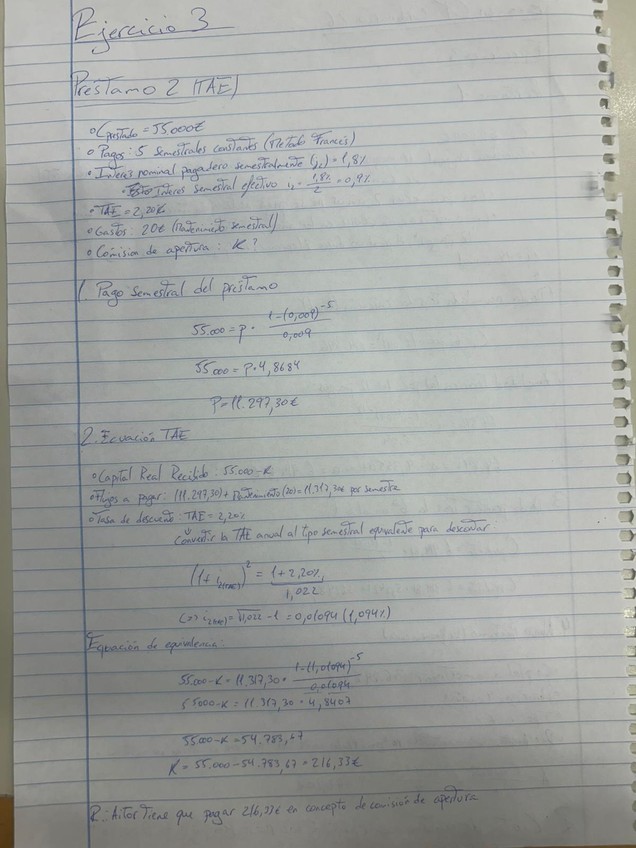 Ejercicio 3
Préstamo 2 (TAE)
• C prestado = 55000€
• Pagos: 5 Semestrales constantes (Metodo Francés)
• Interés nominal pagadero semestralmente (j2) = 1,8%
• Interes Semestral efectivo i2 = 1,8%/2 = 0,9%
• TAE = 2,20%
• Gastos: 20€ (Mantenimiento semestral)
• Comisión de apertura: K?
1. Pago Semestral del préstamo
55.000 = P · 1-(0,009)^-5 / 0,009
55000 = P · 4,8684
P = 11.297,30€
2. Ecuación TAE
• Capital Real Recibido: 55.000-K
• Flujos a pagar: (11.297,30) + Mantenimiento (20) = 11.317,30€ por semestre
• Tasa de descuento: TAE = 2,20%
Convertir la TAE anual al tipo semestral equivalente para descontar
(1+i2(TAE))^2 = 1+2,20%
1,022
i2(TAE) = √1,022 - 1 = 0,01094 (1,094%)
Equación de equivalencia:
55.000-K = 11.317,30 · 1-(1,01094)^-5 / 0,01094
55000-K = 11.317,30 · 4,8407
55.000-K = 54.783,67
K = 55.000-54.783,67 = 216,33€
R: Aitor Tiene que pagar 216,33€ en concepto de comisión de apertura